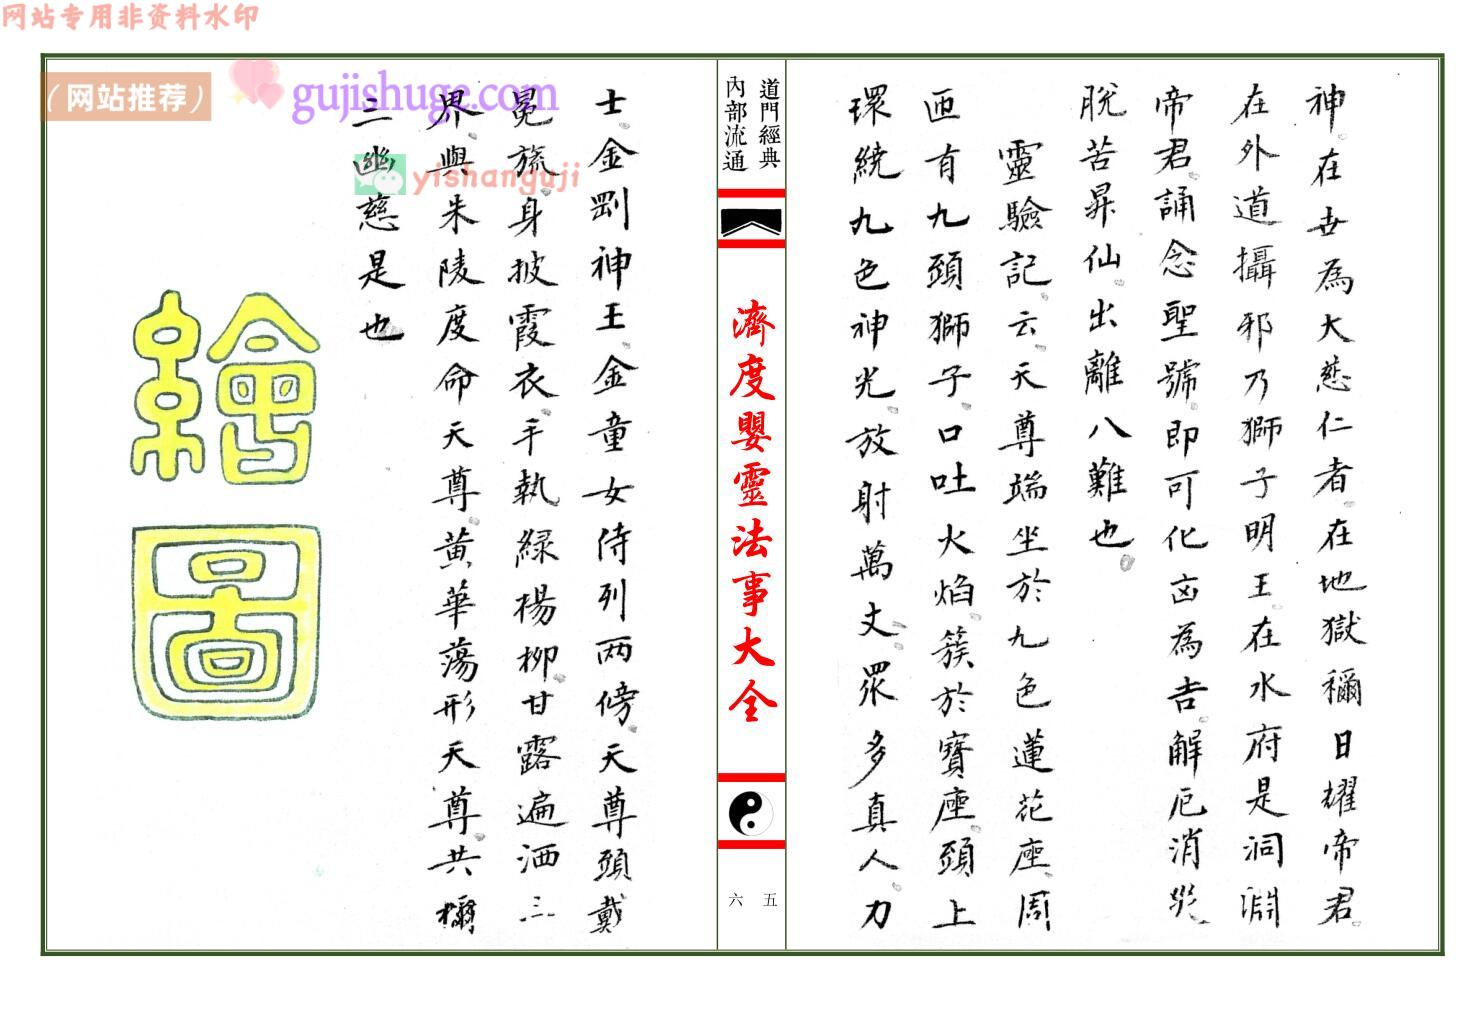 网站专用非资料水印
（网站推荐）
gujishuge.com
yishanguji
神。在世為大慈仁者。在地獄稱日耀帝君。
在外道攝邪乃獅子明王。在水府是洞淵
帝君。誦念聖號。即可化凶為吉。解厄消災。
脫苦昇仙。出離八難也。
靈驗記。云。天尊端坐於九色蓮花座。周
匝有九頭獅子。口吐火焰。簇於寶座。頭上
環繞九色神光。放射萬丈。眾多真人。力
道門經典
內部流通
濟度嬰靈法事大全
五
六
士。金剛神王。金童女侍列两傍。天尊頭戴
冕旒。身披霞衣。手執綠楊柳。甘露遍洒三
界。與朱陵度命天尊。黄華蕩形天尊。共稱
三幽慈是也
繪圖